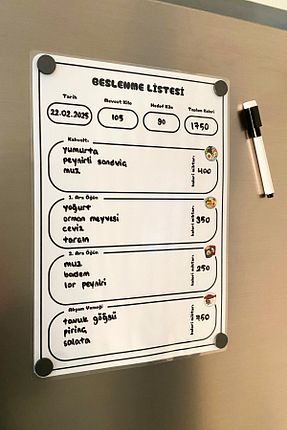 BESLENME LİSTESİ
Tarih Mevcut Kilo Hedef Kilo Toplam Kalori
22.02.2025 105 90 1750
Kahvaltı
yumurta
peynirli sandviç
muz
kalori miktarı
400
1. Ara Öğün
yoğurt
orman meyvesi
ceviz
tarçın
kalori miktarı
350
2. Ara Öğün
muz
badem
lor peyniri
kalori miktarı
250
Akşam Yemeği
tavuk göğsü
pirinç
salata
kalori miktarı
750